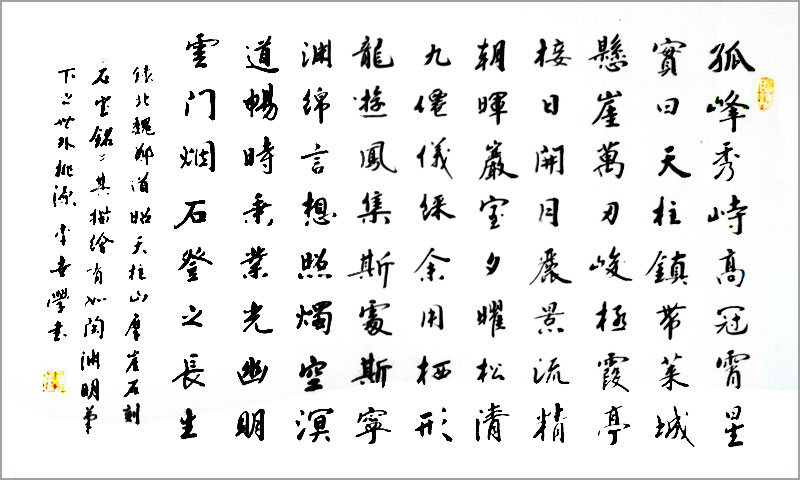 孤峰秀峙高冠霄星
實曰天柱鎮帶萊城
懸崖萬刃峻極霞亭
接日開月麗景流精
朝暉巖室夕曜松清
九僊儀綵余用栖形
龍遊鳳集斯處斯寧
渊綿言想照燭空溟
道暢時乘業光幽明
雲门烟石登之長生
北魏鄭道昭天柱山摩崖石刻
石室銘〻其描繪有如陶渊明筆
下之世外桃源 學書